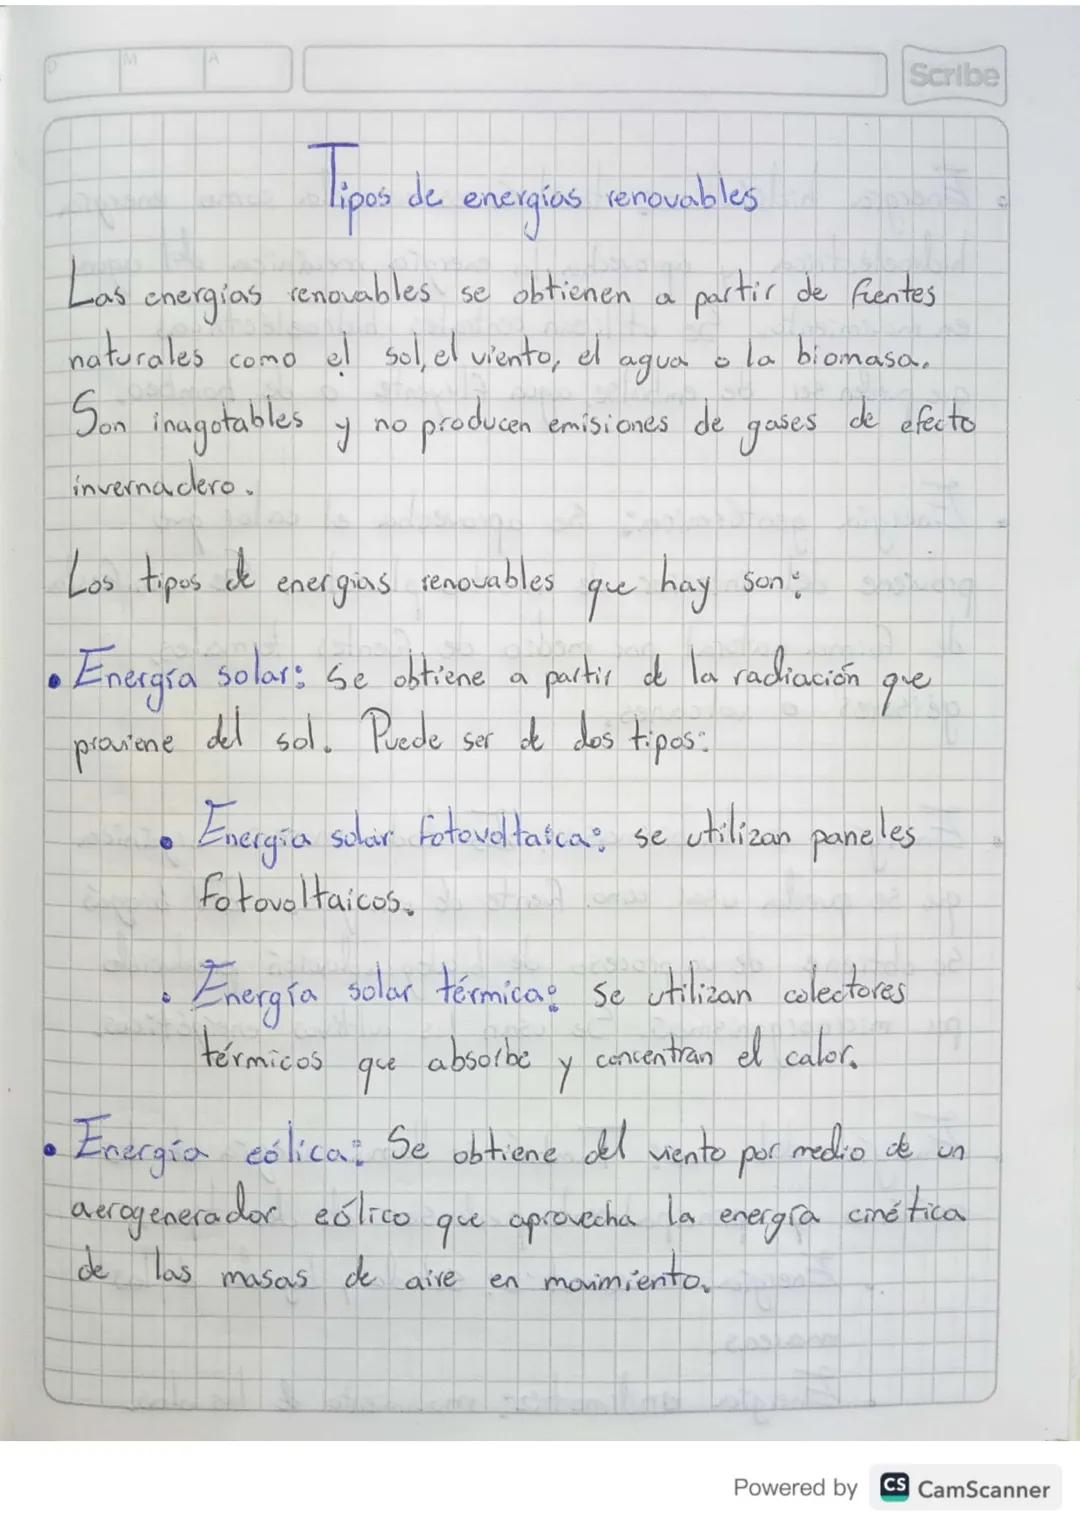 D M A
Scribe
Tipos de energías renovables
Las energías renovables se obtienen a partir de fuentes
naturales como el sol, el viento, el agua o la biomasa.
Son inagotables y no producen emisiones de gases de efecto
invernadero.
Los tipos de energias renovables que hay son:
• Energía solar: Se obtiene a partir de la radiación que
proviene del sol. Puede ser de dos tipos:
• Energía solar fotovoltaica: se utilizan paneles
fotovoltaicos.
• Energía solar térmica: Se utilizan colectores
térmicos que absorbe y concentran el calor.
• Energía eólica: Se obtiene del viento por medio de un
aerogenerador eólico que aprovecha la energía cinética
de las masas de aire en movimiento.
Powered by CS CamScanner